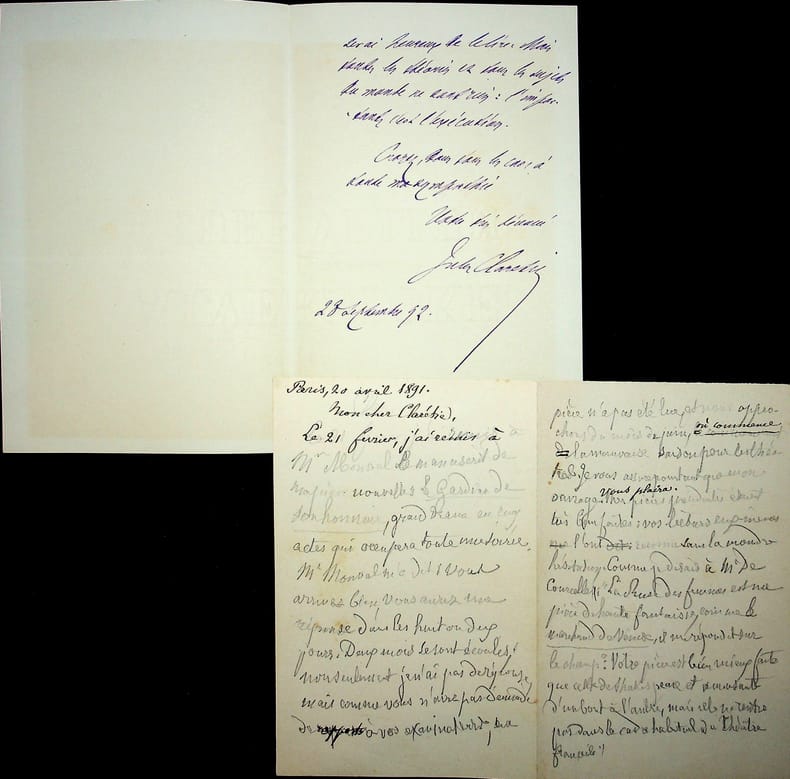 serai heureux de le lire. Mais
toutes les théories et tous les sujets
du monde ne sont rien : l'impor-
-tant, c'est l'exécution.
Croyez, dans tous les cas, à
toute ma sympathie
Votre bien dévoué
Jules Claretie
28 septembre 92.
Paris, 20 avril 1891.
Mon cher Clarétie,
Le 21 février, j'ai remis à
Mr Monval le manuscrit de
ma pièce nouvelle: Le Gardien de
son honneur, grand drame en cinq
actes qui occupera toute une soirée.
Mr Monval m'a dit: Vous
arrivez bien, vous aurez une
réponse dans les huit ou dix
jours. Deux mois se sont écoulés;
non seulement je n'ai pas de réponse,
mais comme vous n'avez pas demandé
de à vos examinateurs, ma
pièce n'a pas été lue, et nous appro-
chons du mois de juin, où commence
la mauvaise saison pour les théâ-
tres. Je vous assure pourtant que mon
ouvrage vous plaira. Mes pièces précédentes étaient
très bien faites: vos lecteurs eux-mêmes
l'ont dit: sans la moindre
hésitation. Comme je disais à Mr de
Courcelles: La Ruse des femmes est une
pièce de haute fantaisie, comme le
marchand de Venise, il me répondit sur
le champ: Votre pièce est bien mieux faite
que celle de Shakespeare et amusante
d'un bout à l'autre, mais elle ne rentre
pas dans le cadre habituel du Théâtre
français!